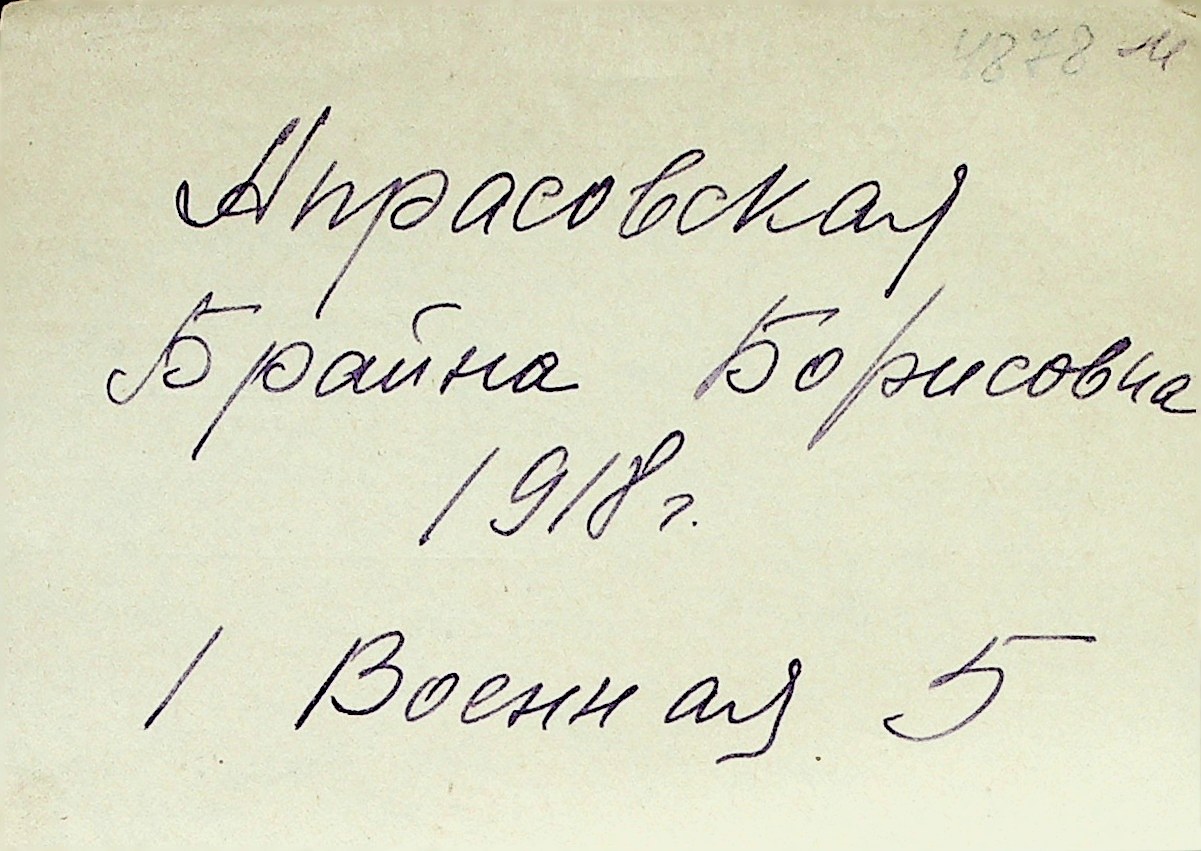 4878 м
Апрасовская
Брайна Борисовна
1918 г.
1 Военная 5